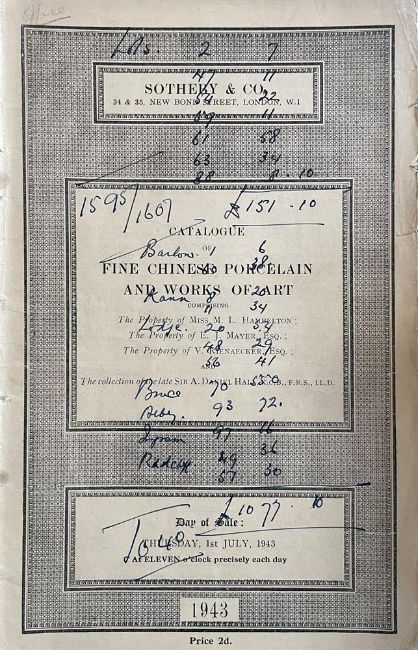 Lots. 2 7
47 11
SOTHEBY & CO.
54 32
34 & 35, NEW BOND STREET, LONDON, W.1
59 11
61 58
63 34
88 8 . 10
1595/1607
£151 . 10
CATALOGUE
Barlow . 1 6
OF
40 38
FINE CHINESE PORCELAIN
AND WORKS OF ART
8 20
COMPRISING
11 34
The Property of MISS M. L. HAMBELTON ;
20 54
The Property of E. J. MAYER, ESQ. ;
48 29
The Property of V. ;
56 41
AND
The collection of the late SIR A. DANIEL HALL, K.C.B., F.R.S., LL.D.
Bruce 70
93 72.
97 16
49 36
57 30
£1077 . 10
Day of Sale :
THURSDAY, 1st JULY, 1943
At ELEVEN o'clock precisely each day
1943
Price 2d.